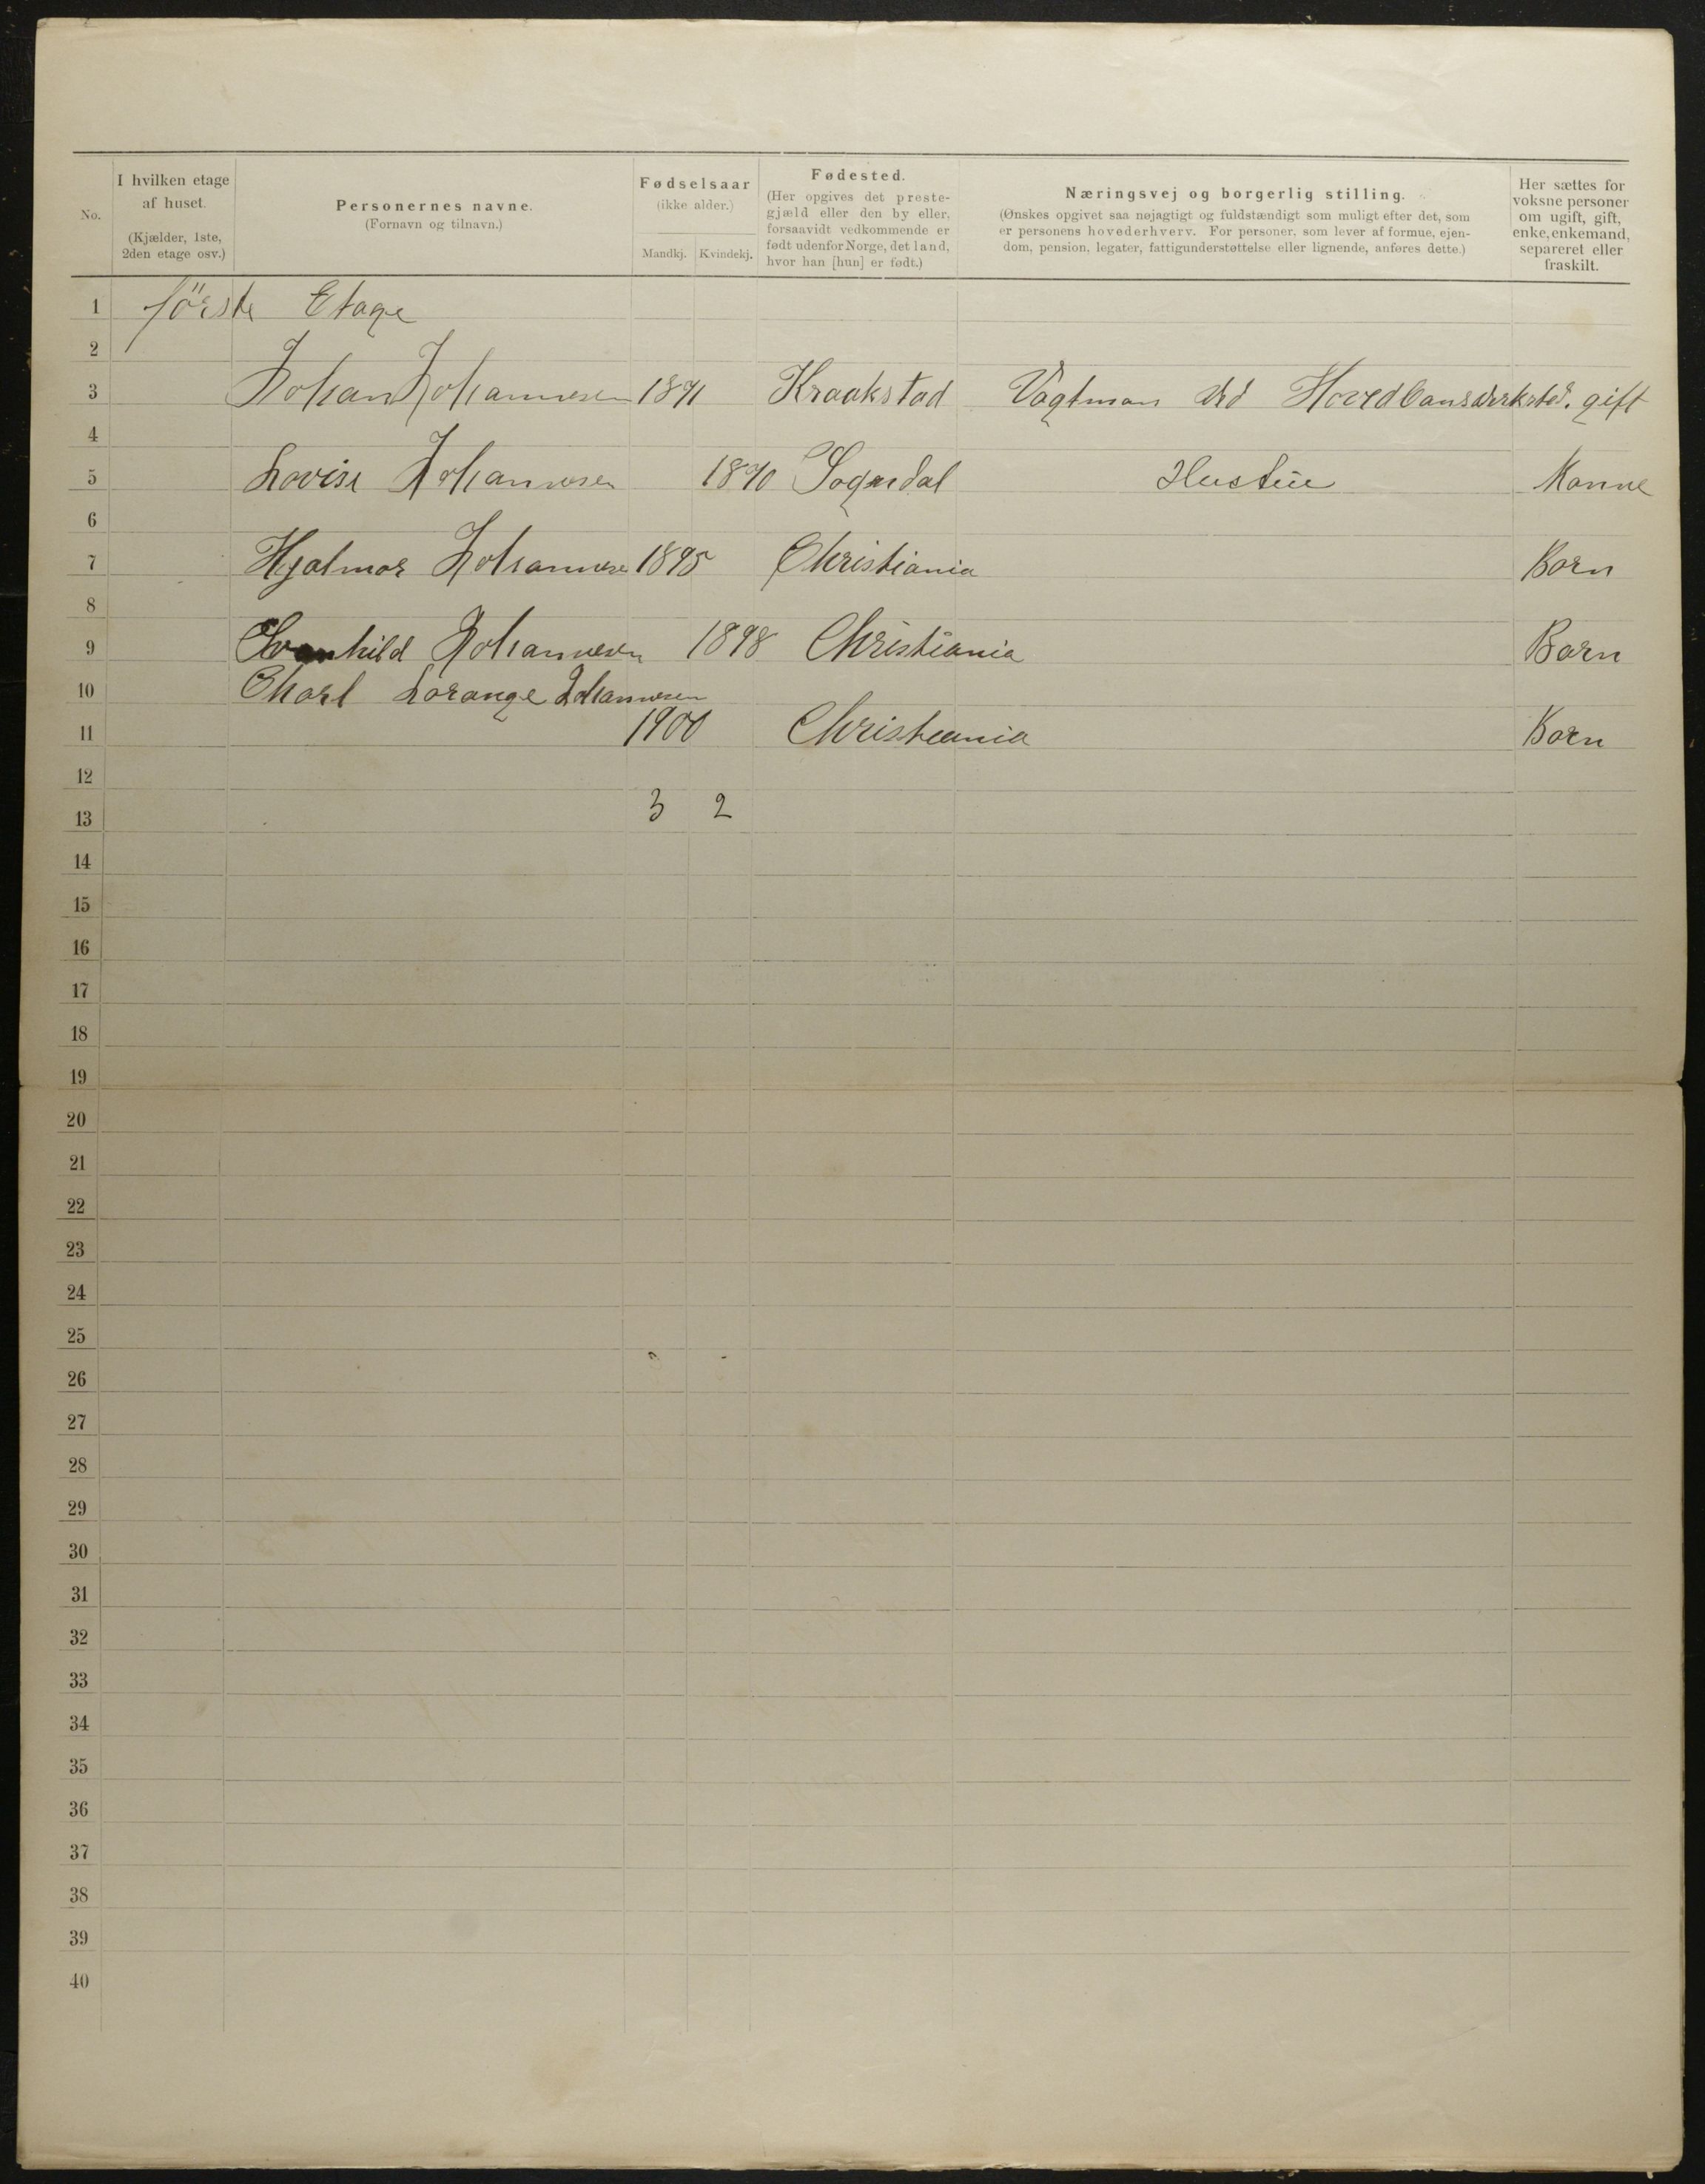 No.
I hvilken etage
af huset.
(Kjælder, 1ste,
2den etage osv.)
Personernes navne.
(Fornavn og tilnavn.)
Fødselsaar
(ikke alder.)
Mandkj. Kvindekj.
Fødested.
(Her opgives det preste-
gjæld eller den by eller,
forsaavidt vedkommende er
født udenfor Norge, det land,
hvor han [hun] er født.)
Næringsvej og borgerlig stilling.
(Ønskes opgivet saa nøjagtigt og fuldstændigt som muligt efter det, som
er personens hovederhverv. For personer, som lever af formue, ejen-
dom, pension, legater, fattigunderstøttelse eller lignende, anføres dette.)
Her sættes for
voksne personer
om ugift, gift,
enke, enkemand,
separeret eller
fraskilt.
1 förste Etage
2
3 Johan Johannesen 1871 Kraakstad Vagtman ved gift
4
5 Lovise Johannesen 1870 Sogndal Hustru
6
7 Hjalmar Johannesen 1895 Christiania Barn
8
9 Johannesen 1898 Christiania Barn
10 Charl Lorange Johannesen
11 1900 Christiania Barn
12
13 3 2
14
15
16
17
18
19
20
21
22
23
24
25
26
27
28
29
30
31
32
33
34
35
36
37
38
39
40